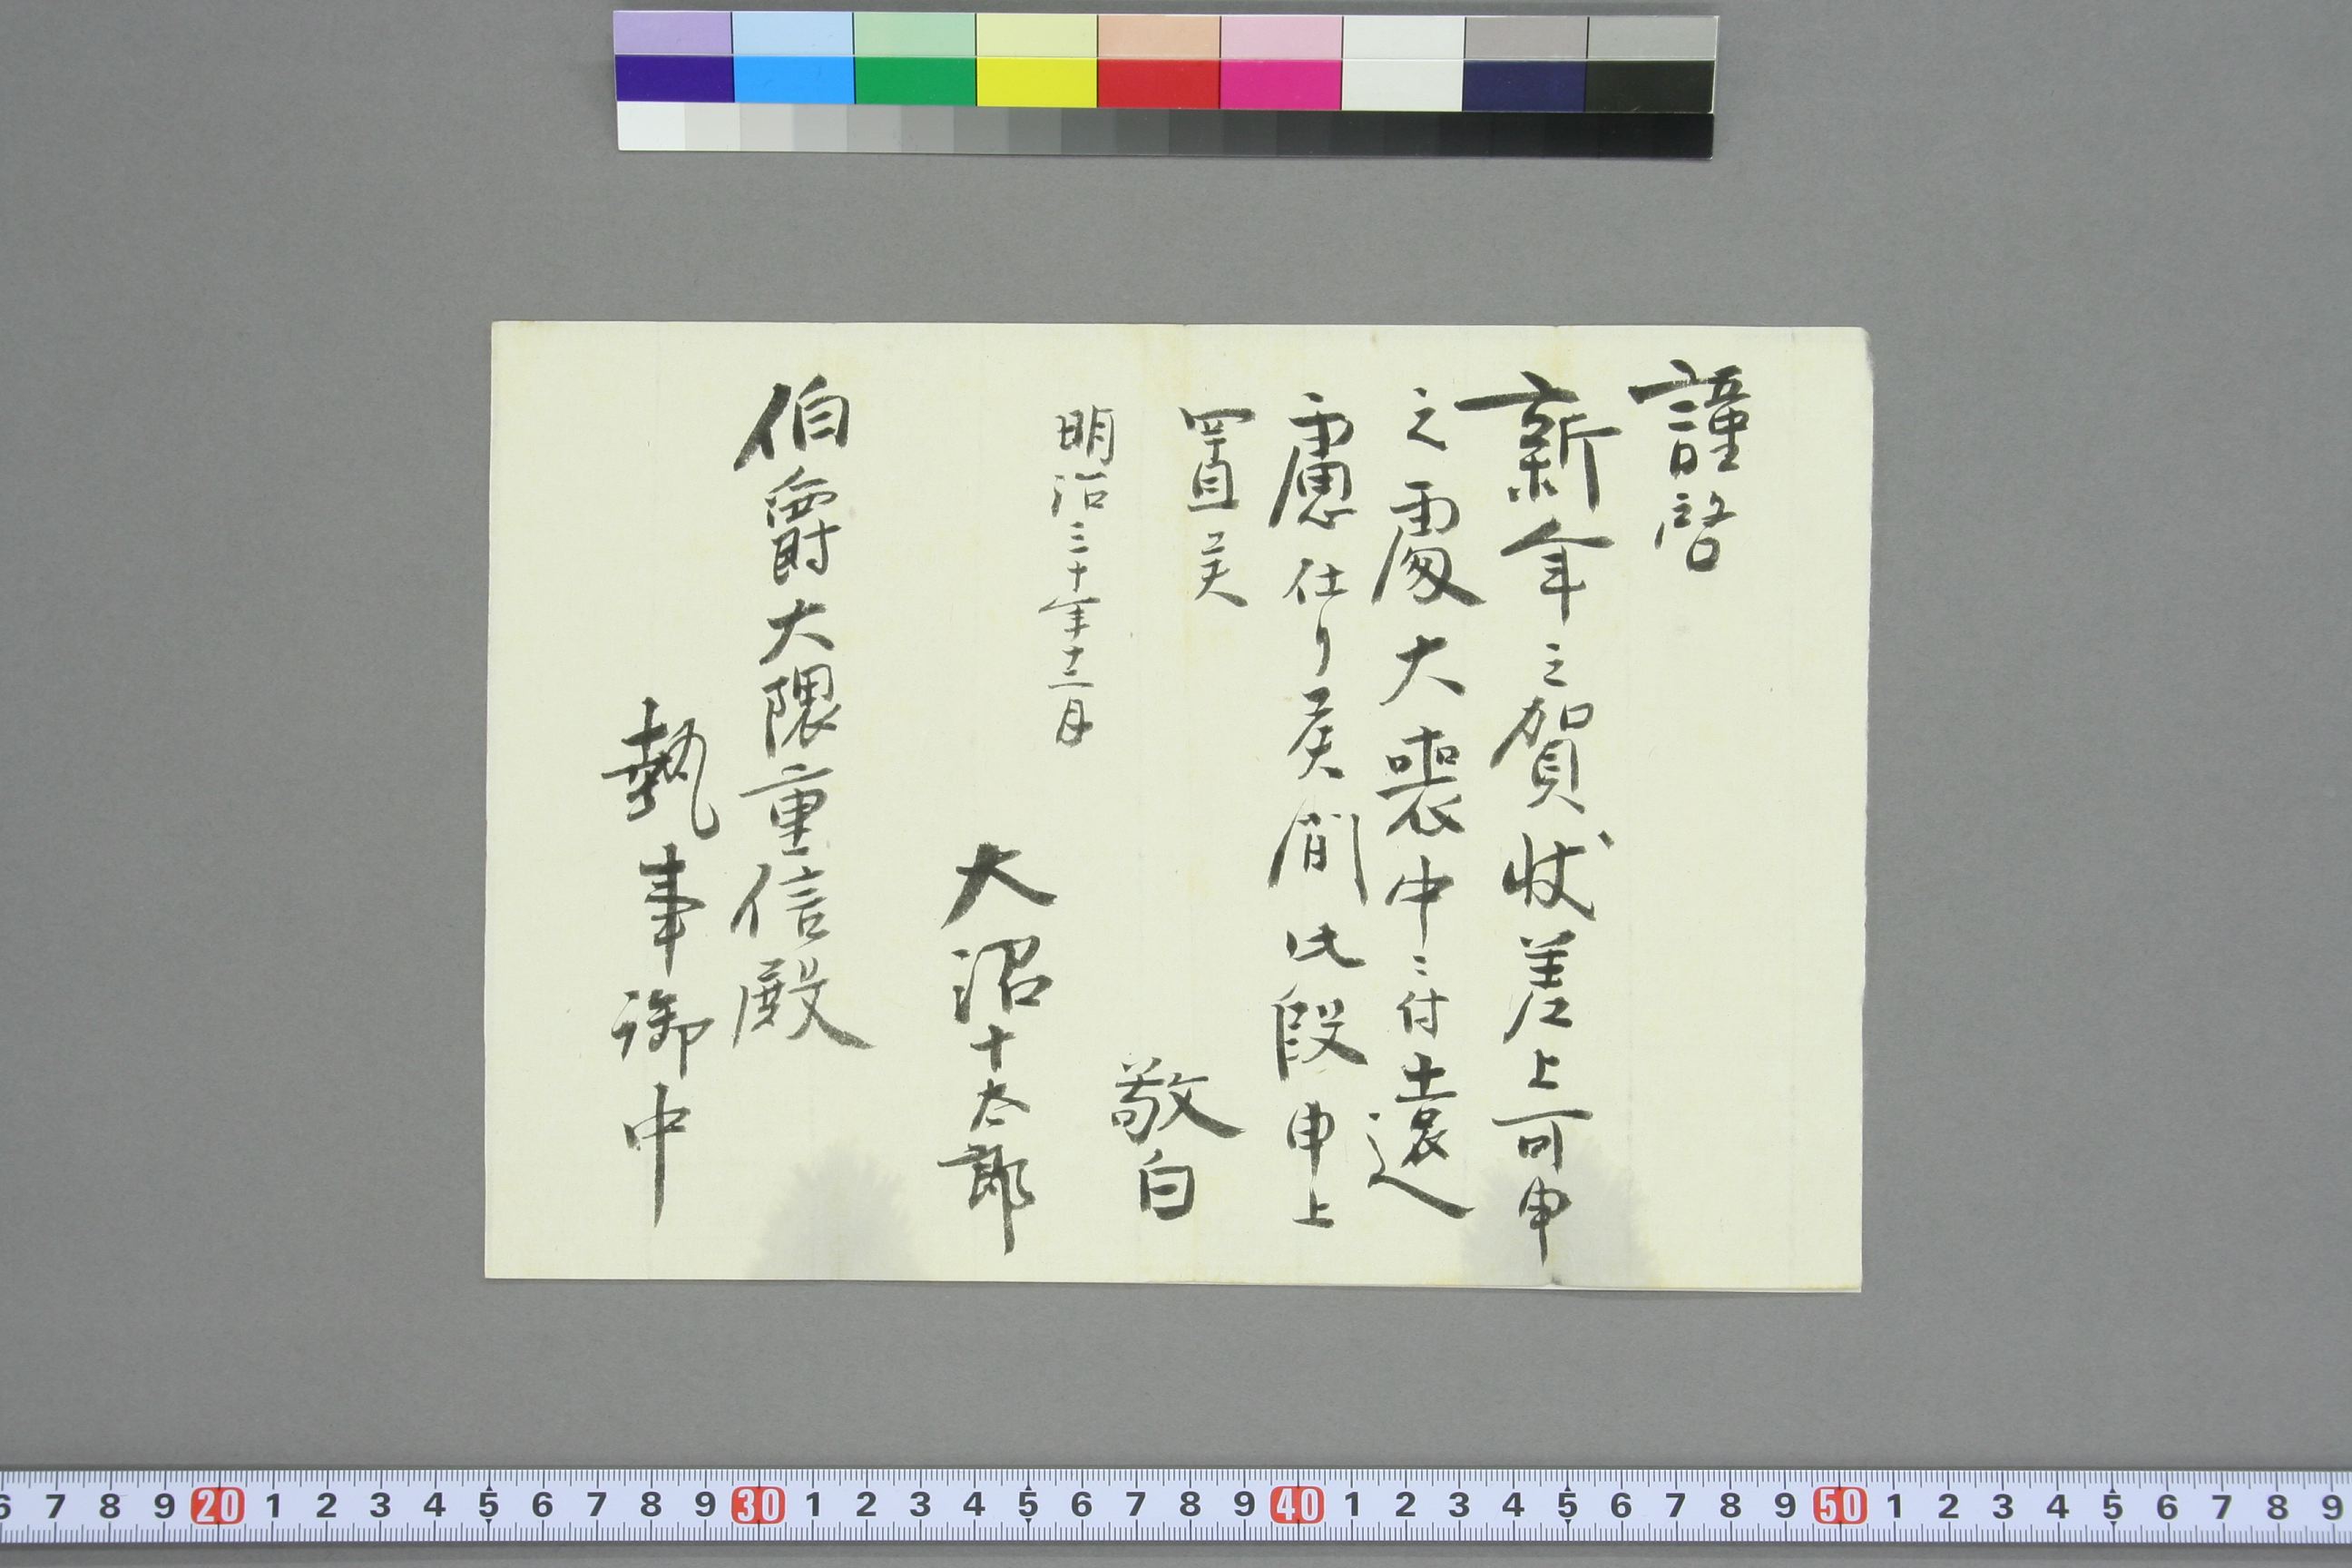 謹啓
新年之賀状差上可申
之處大喪中ニ付遠
慮仕り候間此段申上
置候
敬白
明治三十年十二月
大沼十太郎
伯爵大隈重信殿
執事御中
6 7 8 9 20 1 2 3 4 5 6 7 8 9 30 1 2 3 4 5 6 7 8 9 40 1 2 3 4 5 6 7 8 9 50 1 2 3 4 5 6 7 8 9